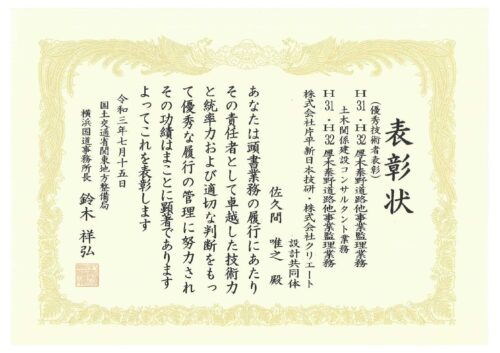 表彰状
(優秀技術者表彰)
H31・H32厚木秦野道路他事業監理業務
土木関係建設コンサルタント業務
H31・H32厚木秦野道路他事業監理業務
株式会社片平新日本技研・株式会社クリエート
設計共同体
佐久間 唯之 殿
あなたは頭書業務の履行にあたり
その責任者として卓越した技術力
と統率力および適切な判断をもっ
て優秀な履行の管理に努力され
その功績はまことに顕著であります
よってこれを表彰します
令和三年七月十五日
国土交通省関東地方整備局
横浜国道事務所長 鈴木 祥弘